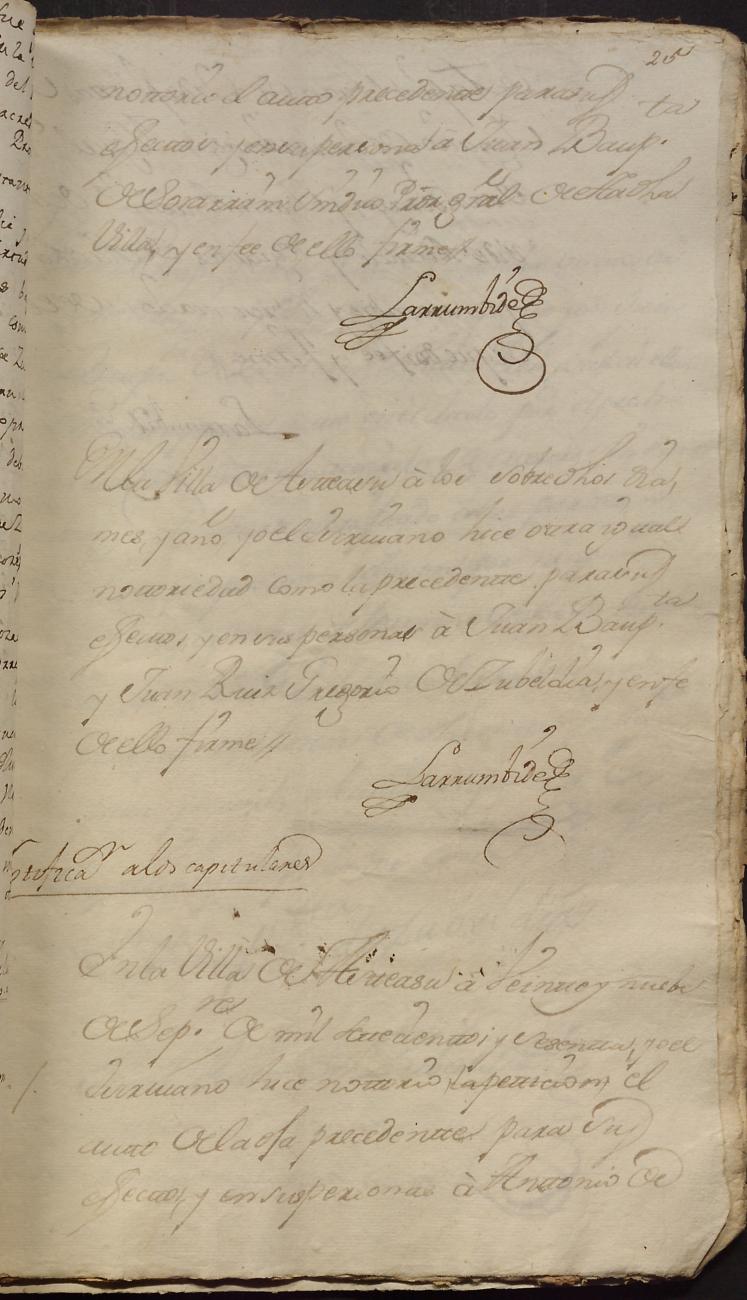 25
notorio el auto precedente para sus
efectos, y en su persona à Juan Baup.ta
de Sorarrain Sindico Pror gral de dha
Villa, y en fee de ello firme//
Larrumbide
En la Villa de Atteasu à los sobredhos dia,
mes, y año yo el Escrivano hice otra igual
notoriedad como la precedente para sus
efectos, y en sus personas à Juan Baup.ta
y Juan Ruiz Gregorio de Zubeldia, y en fe
de ello firme//
Larrumbide
notificaon a los capitulares
En la Villa de Atteasu à Veinte y nuebe
de Sep.res de mil setecientos y sesenta, yo el
Escrivano hice notorio la peticion, el
auto de la ofa precedente para sus
efectos, y en sus personas à Antonio de